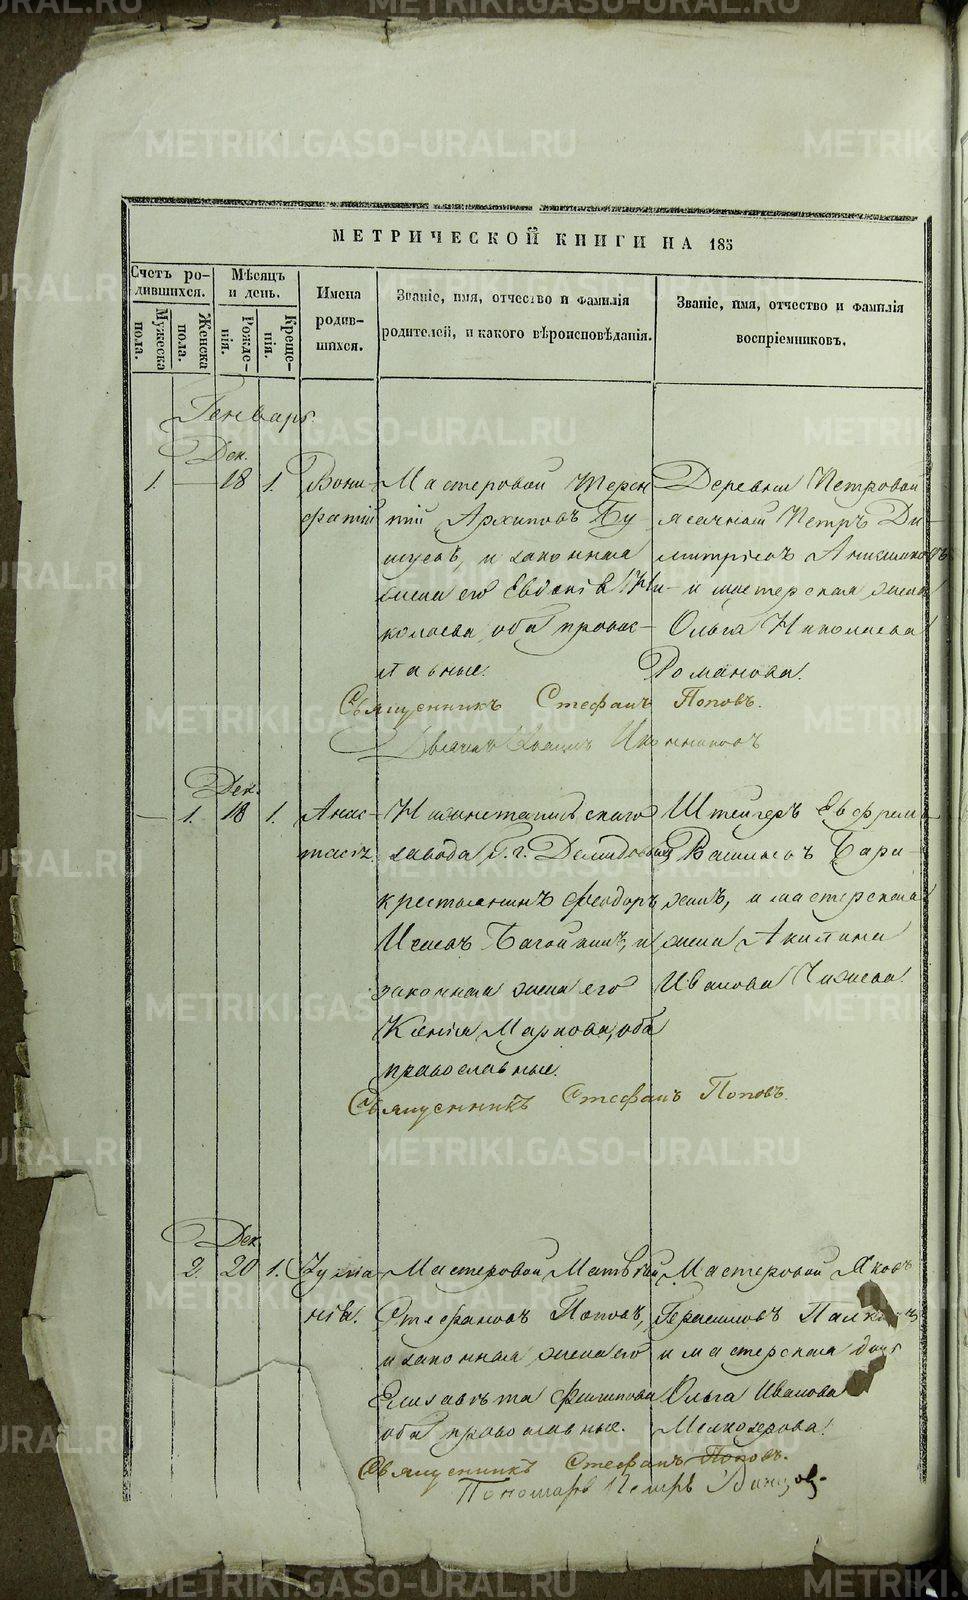 METRIKI.GASO-URAL.RU
МЕТРИЧЕСКОЙ КНИГИ НА 185
Счетъ ро-
дившихся.
Мужеска
пола.
Женска
пола.
Мѣсяцъ
и день.
Рожде-
нія.
Креще-
нія.
Имена
родив-
шихся.
Званіе, имя, отчество и фамилія
родителей, и какого вѣроисповѣданія.
Званіе, имя, отчество и фамилія
воспріемниковъ.
Генварь.
Дек.
1. — 18 1.
Вони-
фатій
Мастеровой Терен
тій Архиповъ
и законная
жена его Евдокія Ни-
колаева, оба правос-
лавные.
Деревни Петровой
ясачный Петръ Ди-
митріевъ
и мастерская жена
Ольга Николаева
Романова.
Священникъ Стефанъ Попов.
Дек.
— 1. 18 1.
Анас-
тасія.
Нижнетагильскаго
завода Г.г. Демидовыхъ
крестьянинъ Феодоръ
и
законная жена его
Ксенія Маркова, оба
православные.
Штейгеръ Евфремъ
Васильевъ
и мастерская
жена Акилина
Иванова Чижева.
Священникъ Стефанъ Поповъ.
Дек.
2. 20 1.
Іуліа-
нія.
Мастеровой Матвѣй
Стефановъ Поповъ,
и законная жена его
Елисавета Филипова
оба православные.
Мастеровой Яковъ
Герасимовъ
и мастерская
Ольга Иванова
Мелкозерова.
Священникъ Стефанъ Поповъ.
Пономарь Петръ